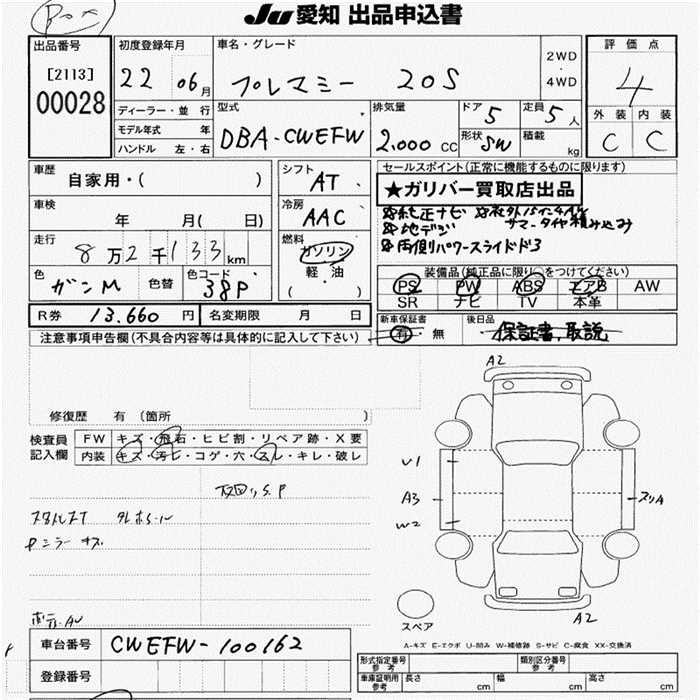 Ju 愛知 出品申込書
出品番号 初度登録年月 車名・グレード 2WD・4WD 評価点
[2113] 00028 22 06月 プレマシー 20S 4
ディーラー・並行 型式 排気量 ドア 5 定員 5人 外装 内装
モデル年式 年 DBA-CWEFW 2,000cc 形状 SW 積載 kg C C
ハンドル 左・右
車歴 シフト セールスポイント(正常に機能するものに限ります)
自家用・( ) AT ★ガリバー買取店出品
車検 冷房 純正ナビ 社外15インチAW
年 月( 日) AAC 地デジ サマータイヤ積み込み
走行 燃料 両側パワースライドドア
8万2千133km ガソリン
軽・油
( )
色 色替 色コード 装備品(純正品に限り○をつけてください)
ガンM 38P PS PW ABS エアB AW
SR ナビ TV 本革
R券 13.660円 名変期限 月 日 新車保証書 後日品
注意事項申告欄(不具合内容等は具体的に記入して下さい) 有・無 保証書、取説
A2
修復歴 有(箇所 )
検査員 FW キズ・飛石・ヒビ割・リペア跡・X要
記入欄 内装 キズ・汚レ・コゲ・穴・スレ・キレ・破レ
U1
A3
W2
ミラーキズ
A2
スペア
A-キズ E-エクボ U-凹み W-補修跡 S-サビ C-腐食 XX-交換済
車台番号 CWEFW-100162
登録番号
形式指定番号 参考 類別区分番号 参考
車庫証明用 参考 長さ cm 幅 cm 高さ cm